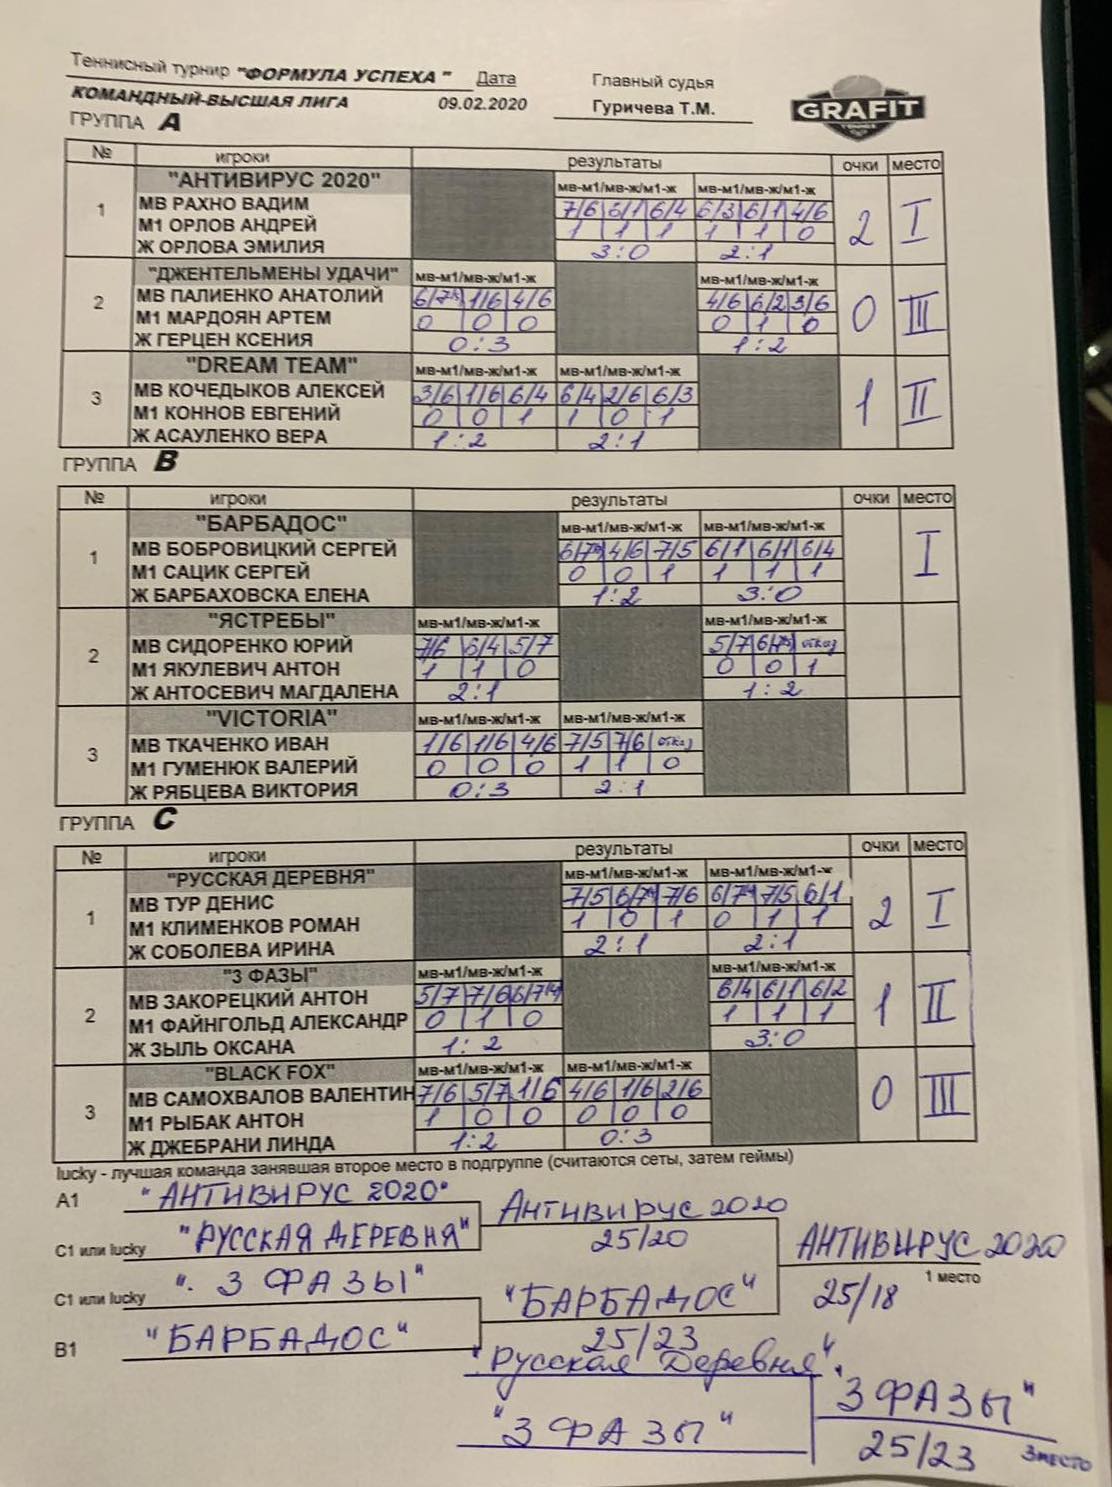 Теннисный турнир "ФОРМУЛА УСПЕХА" Дата Главный судья
КОМАНДНЫЙ-ВЫСШАЯ ЛИГА 09.02.2020 Гуричева Т.М.
GRAFIT
ГРУППА А
№ игроки результаты очки место
"АНТИВИРУС 2020" мв-м1/мв-ж/м1-ж мв-м1/мв-ж/м1-ж
1 МВ РАХНО ВАДИМ 7/6 6/1 6/4 6/3 6/1 4/6 2 I
М1 ОРЛОВ АНДРЕЙ 1 1 1 1 1 0
Ж ОРЛОВА ЭМИЛИЯ 3:0 2:1
"ДЖЕНТЕЛЬМЕНЫ УДАЧИ" мв-м1/мв-ж/м1-ж мв-м1/мв-ж/м1-ж
2 МВ ПАЛИЕНКО АНАТОЛИЙ 6/7 1/6 4/6 4/6 6/2 3/6 0 III
М1 МАРДОЯН АРТЕМ 0 0 0 0 1 0
Ж ГЕРЦЕН КСЕНИЯ 0:3 1:2
"DREAM TEAM" мв-м1/мв-ж/м1-ж мв-м1/мв-ж/м1-ж
3 МВ КОЧЕДЫКОВ АЛЕКСЕЙ 3/6 1/6 6/4 6/4 2/6 6/3 1 II
М1 КОННОВ ЕВГЕНИЙ 0 0 1 1 0 1
Ж АСАУЛЕНКО ВЕРА 1:2 2:1
ГРУППА В
№ игроки результаты очки место
"БАРБАДОС" мв-м1/мв-ж/м1-ж мв-м1/мв-ж/м1-ж
1 МВ БОБРОВИЦКИЙ СЕРГЕЙ 6/7 4/6 7/5 6/1 6/1 6/4 I
М1 САЦИК СЕРГЕЙ 0 0 1 1 1 1
Ж БАРБАХОВСКА ЕЛЕНА 1:2 3:0
"ЯСТРЕБЫ" мв-м1/мв-ж/м1-ж мв-м1/мв-ж/м1-ж
2 МВ СИДОРЕНКО ЮРИЙ 7/6 6/4 5/7 5/7 6/7 отказ
М1 ЯКУЛЕВИЧ АНТОН 1 1 0 0 0 1
Ж АНТОСЕВИЧ МАГДАЛЕНА 2:1 1:2
"VICTORIA" мв-м1/мв-ж/м1-ж мв-м1/мв-ж/м1-ж
3 МВ ТКАЧЕНКО ИВАН 1/6 1/6 4/6 7/5 7/6 отказ
М1 ГУМЕНЮК ВАЛЕРИЙ 0 0 0 1 1 0
Ж РЯБЦЕВА ВИКТОРИЯ 0:3 2:1
ГРУППА С
№ игроки результаты очки место
"РУССКАЯ ДЕРЕВНЯ" мв-м1/мв-ж/м1-ж мв-м1/мв-ж/м1-ж
1 МВ ТУР ДЕНИС 7/5 6/7 7/6 6/7 7/5 6/1 2 I
М1 КЛИМЕНКОВ РОМАН 1 0 1 0 1 1
Ж СОБОЛЕВА ИРИНА 2:1 2:1
"3 ФАЗЫ" мв-м1/мв-ж/м1-ж мв-м1/мв-ж/м1-ж
2 МВ ЗАКОРЕЦКИЙ АНТОН 5/7 7/6 6/7 6/4 6/1 6/2 1 II
М1 ФАЙНГОЛЬД АЛЕКСАНДР 0 1 0 1 1 1
Ж ЗЫЛЬ ОКСАНА 1:2 3:0
"BLACK FOX" мв-м1/мв-ж/м1-ж мв-м1/мв-ж/м1-ж
3 МВ САМОХВАЛОВ ВАЛЕНТИН 7/6 5/7 1/6 4/6 1/6 2/6 0 III
М1 РЫБАК АНТОН 1 0 0 0 0 0
Ж ДЖЕБРАНИ ЛИНДА 1:2 0:3
lucky - лучшая команда занявшая второе место в подгруппе (считаются сеты, затем геймы)
А1 "АНТИВИРУС 2020"
Антивирус 2020
С1 или lucky "РУССКАЯ ДЕРЕВНЯ" 25/20
АНТИВИРУС 2020
1 место
С1 или lucky ". 3 ФАЗЫ" 25/18
"БАРБАДОС"
В1 "БАРБАДОС" 25/23
"Русская Деревня"
"3 ФАЗЫ"
"3 ФАЗЫ"
25/23 3место